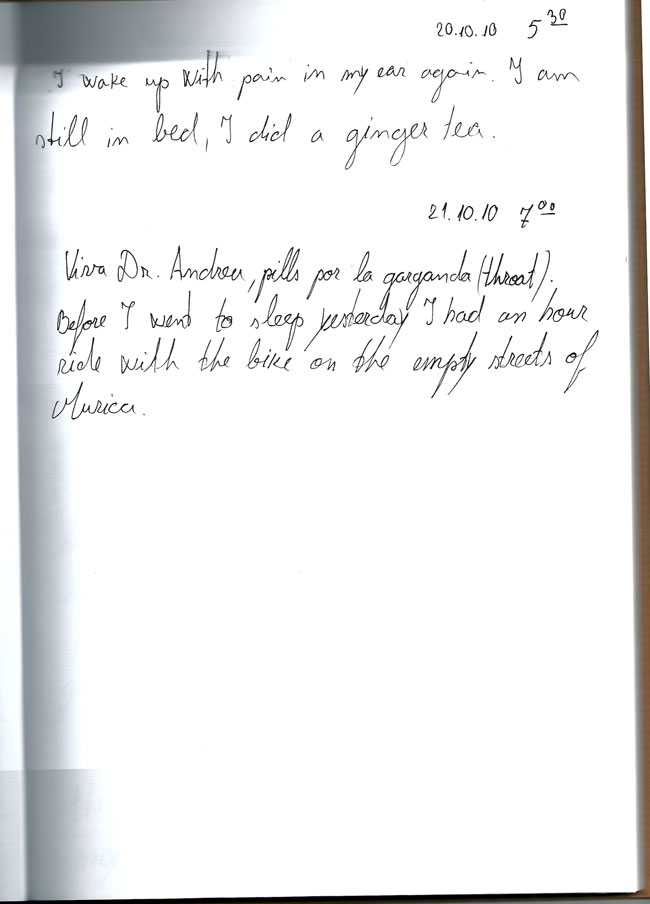 20.10.10 5 30
I wake up with pain in my ear again. I am
still in bed, I did a ginger tea.
21.10.10 7 00
Viva Dr. Andreu, pills por la garganda (throat).
Before I went to sleep yesterday I had an hour
ride with the bike on the empty streets of
Murica.